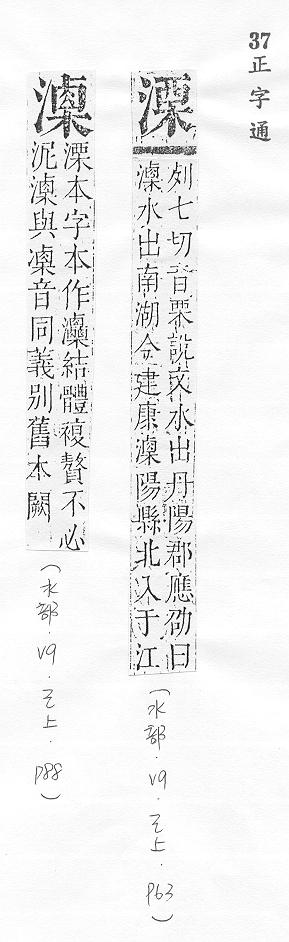 37正字通
溧
力七切音栗說文水出丹陽郡應劭曰
溧水出南湖今建康溧陽縣北入于江
(水部.V9.巳上.P63)
㵀
溧本字本作㶂結體複贅不必
泥㵀與凓音同義別舊本闕
(水部.V9.巳上.P88)